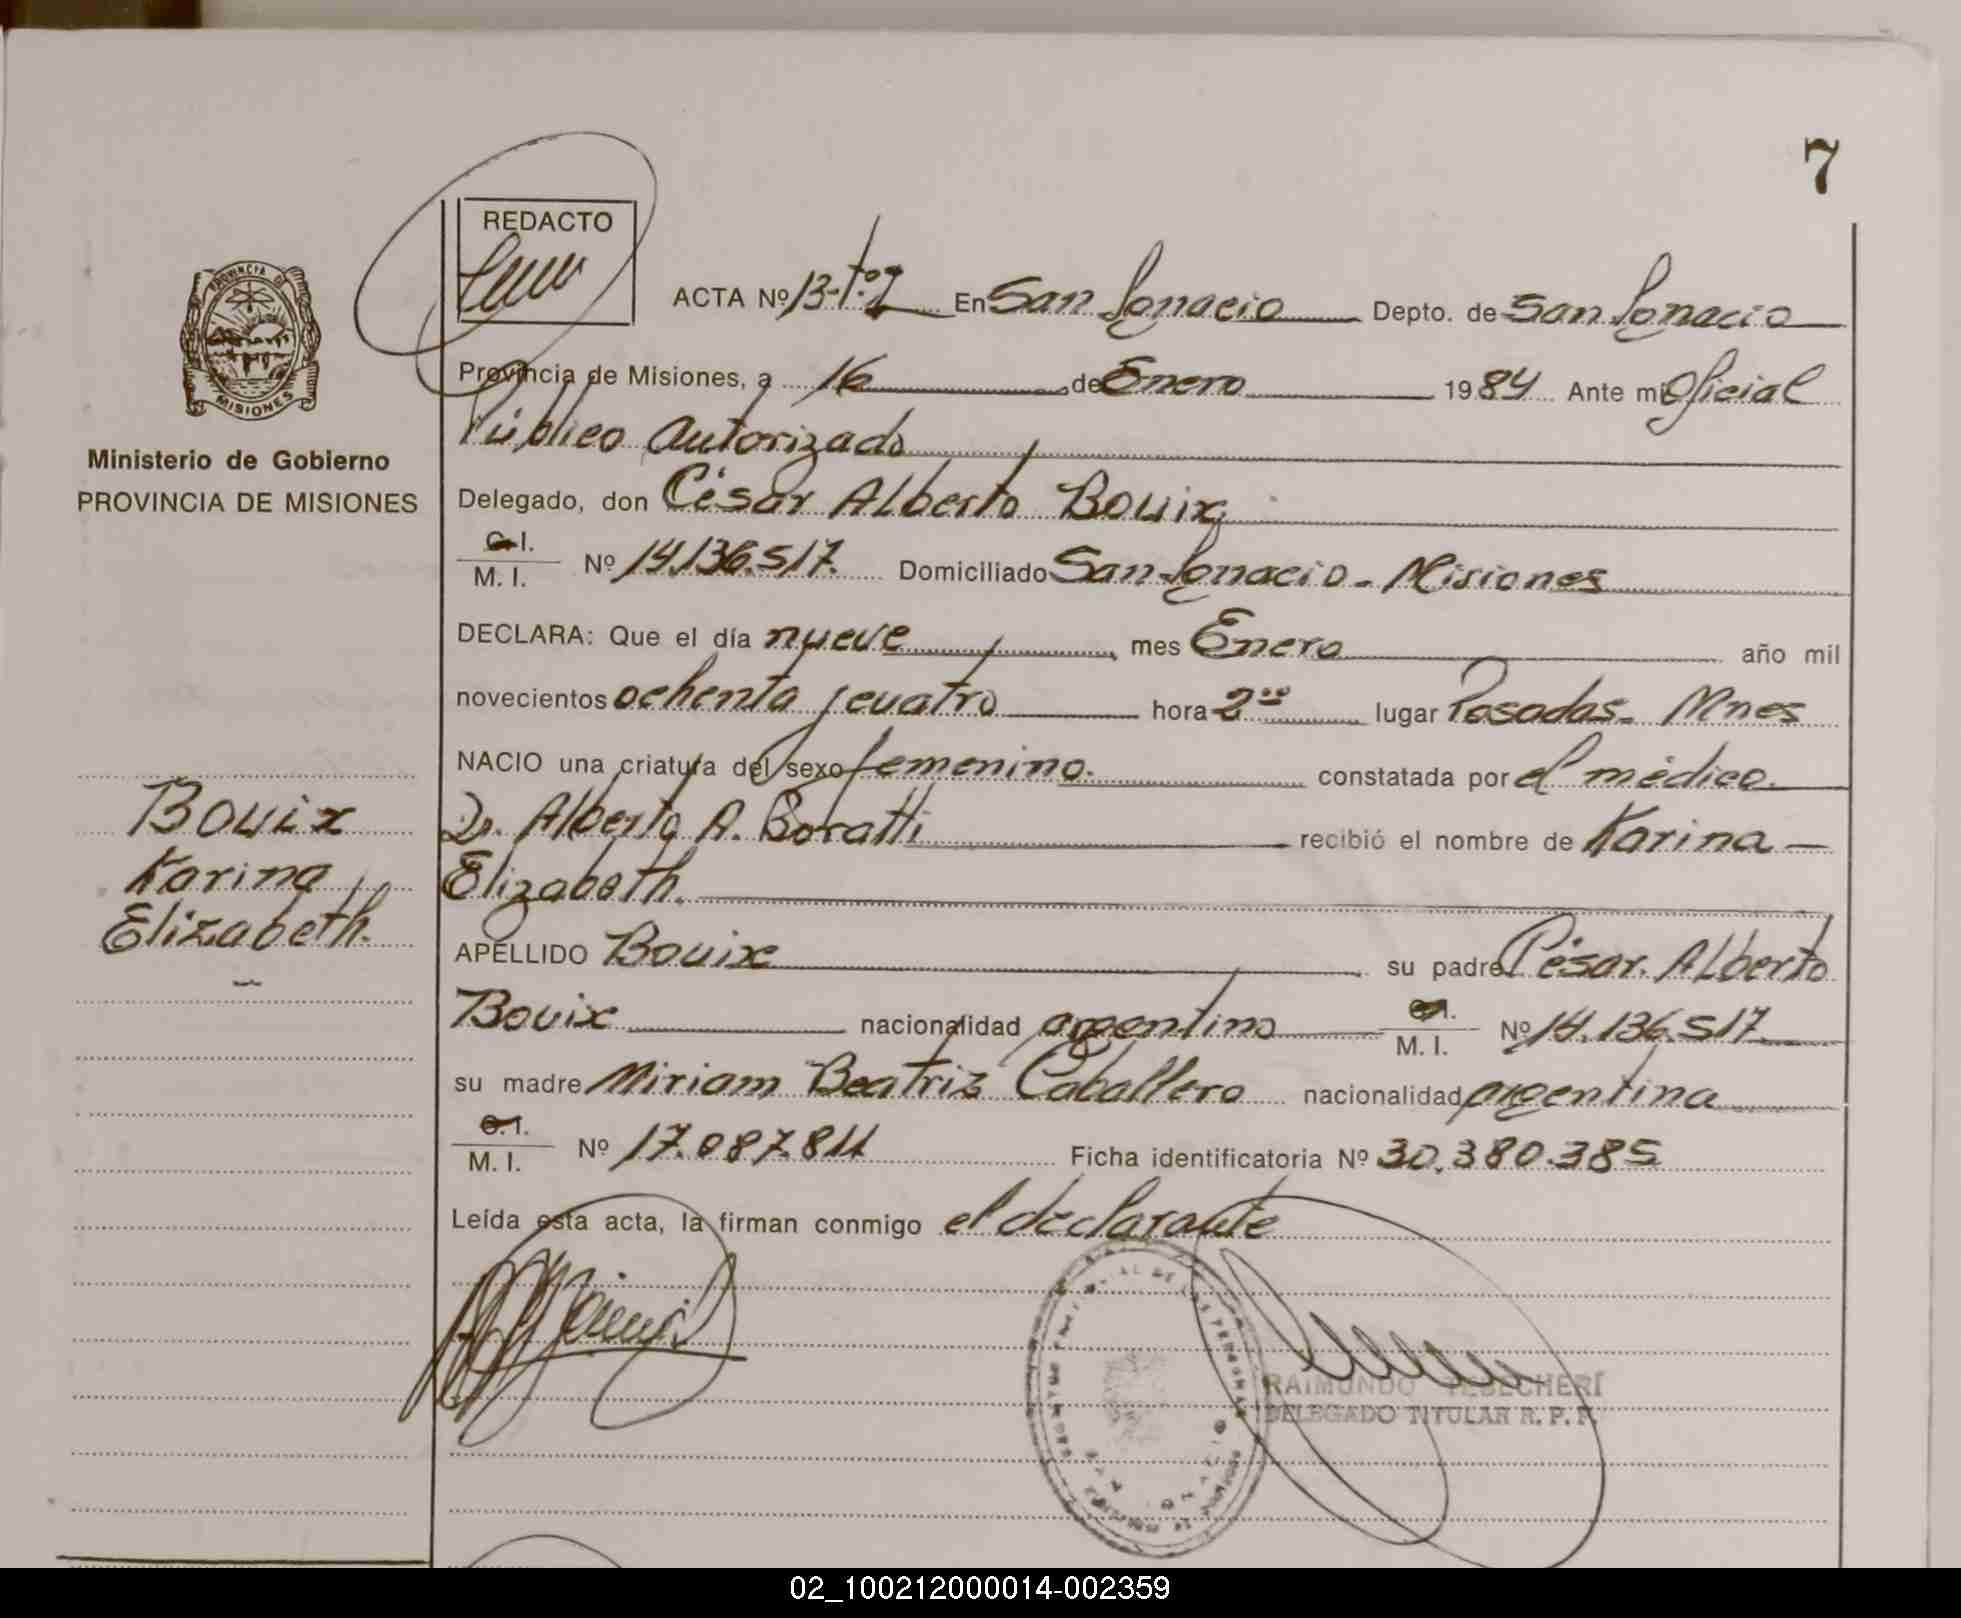 7
REDACTO
ACTA Nº 13-tº2 En San Ignacio Depto. de San Ignacio
Provincia de Misiones, a 16 de Enero 1984 Ante mi Oficial
Público Autorizado
Delegado, don César Alberto Bouix
C.I.
M. I. Nº 14.136.517. Domiciliado San Ignacio - Misiones
DECLARA: Que el día nueve, mes Enero año mil
novecientos ochenta y cuatro hora 2°° lugar Posadas - Mnes
NACIO una criatura del sexo femenino. constatada por el médico.
Dr. Alberto A. Boratti recibió el nombre de Karina
Elizabeth.
APELLIDO Bouix su padre César Alberto
Bouix nacionalidad argentino C.I.
M. I. Nº 14.136.517
su madre Miriam Beatriz Caballero nacionalidad argentina
C.I.
M. I. Nº 17.087.811 Ficha identificatoria Nº 30.380.385
Leída esta acta, la firman conmigo el declarante
RAIMUNDO TEBECHERÍ
DELEGADO TITULAR R. P. P.
PROVINCIA DE
MISIONES
Ministerio de Gobierno
PROVINCIA DE MISIONES
Bouix
Karina
Elizabeth.
02_100212000014-002359